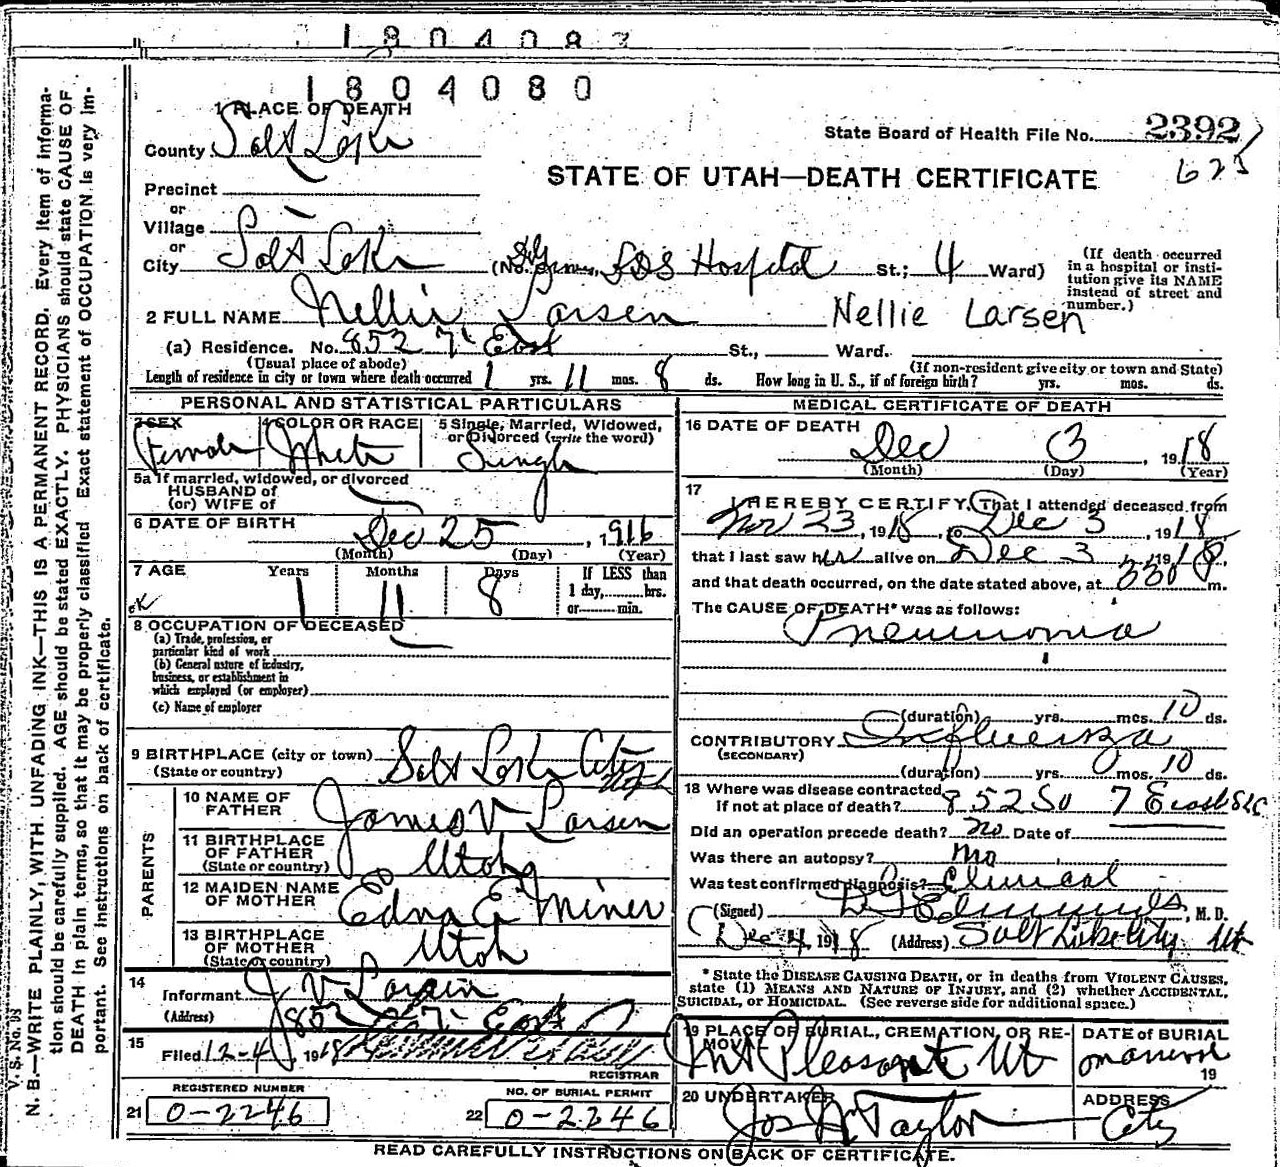 1804083
1804080
1 PLACE OF DEATH
County Salt Lake
State Board of Health File No. 2392
625
Precinct
or
Village
or
City Salt Lake
STATE OF UTAH—DEATH CERTIFICATE
(No. LDS Hospital St.; 4 Ward)
(If death occurred
in a hospital or insti-
tution give its NAME
instead of street and
number.)
2 FULL NAME Nellie Larsen Nellie Larsen
(a) Residence. No. 852 7 East St., Ward.
(Usual place of abode)
(If non-resident give city or town and State)
Length of residence in city or town where death occurred 1 yrs. 11 mos. 8 ds. How long in U. S., if of foreign birth? yrs. mos. ds.
PERSONAL AND STATISTICAL PARTICULARS
3 SEX
Female
4 COLOR OR RACE
White
5 Single, Married, Widowed,
or Divorced (write the word)
Single
5a If married, widowed, or divorced
HUSBAND of
(or) WIFE of
6 DATE OF BIRTH Dec 25, 1916
(Month) (Day) (Year)
7 AGE Years Months Days
1 11 8
If LESS than
1 day, hrs.
or min.
OK
8 OCCUPATION OF DECEASED
(a) Trade, profession, or
particular kind of work
(b) General nature of industry,
business, or establishment in
which employed (or employer)
(c) Name of employer
9 BIRTHPLACE (city or town) Salt Lake City
(State or country) Utah
PARENTS
10 NAME OF
FATHER James V Larsen
11 BIRTHPLACE
OF FATHER Utah
(State or country)
12 MAIDEN NAME
OF MOTHER Edna E Miner
13 BIRTHPLACE
OF MOTHER Utah
(State or country)
14
Informant J V Larsen
(Address) 852 So 7 East
15
Filed 12-4, 1918
REGISTRAR
REGISTERED NUMBER
21 0-2246
NO. OF BURIAL PERMIT
22 0-2246
MEDICAL CERTIFICATE OF DEATH
16 DATE OF DEATH
Dec 3, 1918
(Month) (Day) (Year)
17
I HEREBY CERTIFY, That I attended deceased from
Nov 23, 1918, to Dec 3, 1918
that I last saw her alive on Dec 3, 1918,
and that death occurred, on the date stated above, at 330 P m.
The CAUSE OF DEATH* was as follows:
Pneumonia
(duration) yrs. mos. 10 ds.
CONTRIBUTORY Influenza
(SECONDARY)
(duration) yrs. mos. 10 ds.
18 Where was disease contracted
if not at place of death? 852 So 7 East SLC
Did an operation precede death? no Date of
Was there an autopsy? no
Was test confirmed diagnosis? Clinical
(Signed) , M. D.
Dec 4, 1918 (Address) Salt Lake City Ut
* State the DISEASE CAUSING DEATH, or in deaths from VIOLENT CAUSES,
state (1) MEANS AND NATURE OF INJURY, and (2) whether ACCIDENTAL,
SUICIDAL, or HOMICIDAL. (See reverse side for additional space.)
19 PLACE OF BURIAL, CREMATION, OR RE-
MOVAL
Mt Pleasant Ut
DATE OF BURIAL
19
20 UNDERTAKER
Jos Wm Taylor
ADDRESS
City
READ CAREFULLY INSTRUCTIONS ON BACK OF CERTIFICATE.
V. S. No. 98
N. B.—WRITE PLAINLY, WITH UNFADING INK—THIS IS A PERMANENT RECORD. Every item of informa-
tion should be carefully supplied. AGE should be stated EXACTLY. PHYSICIANS should state CAUSE OF
DEATH in plain terms, so that it may be properly classified. Exact statement of OCCUPATION is very im-
portant. See instructions on back of certificate.